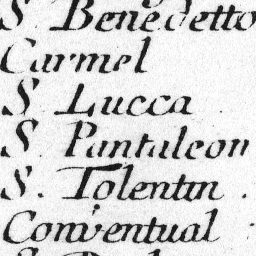 S Benedetto
Carmel
S Lucca
S Pantaleon
S. Tolentin .
Conventual